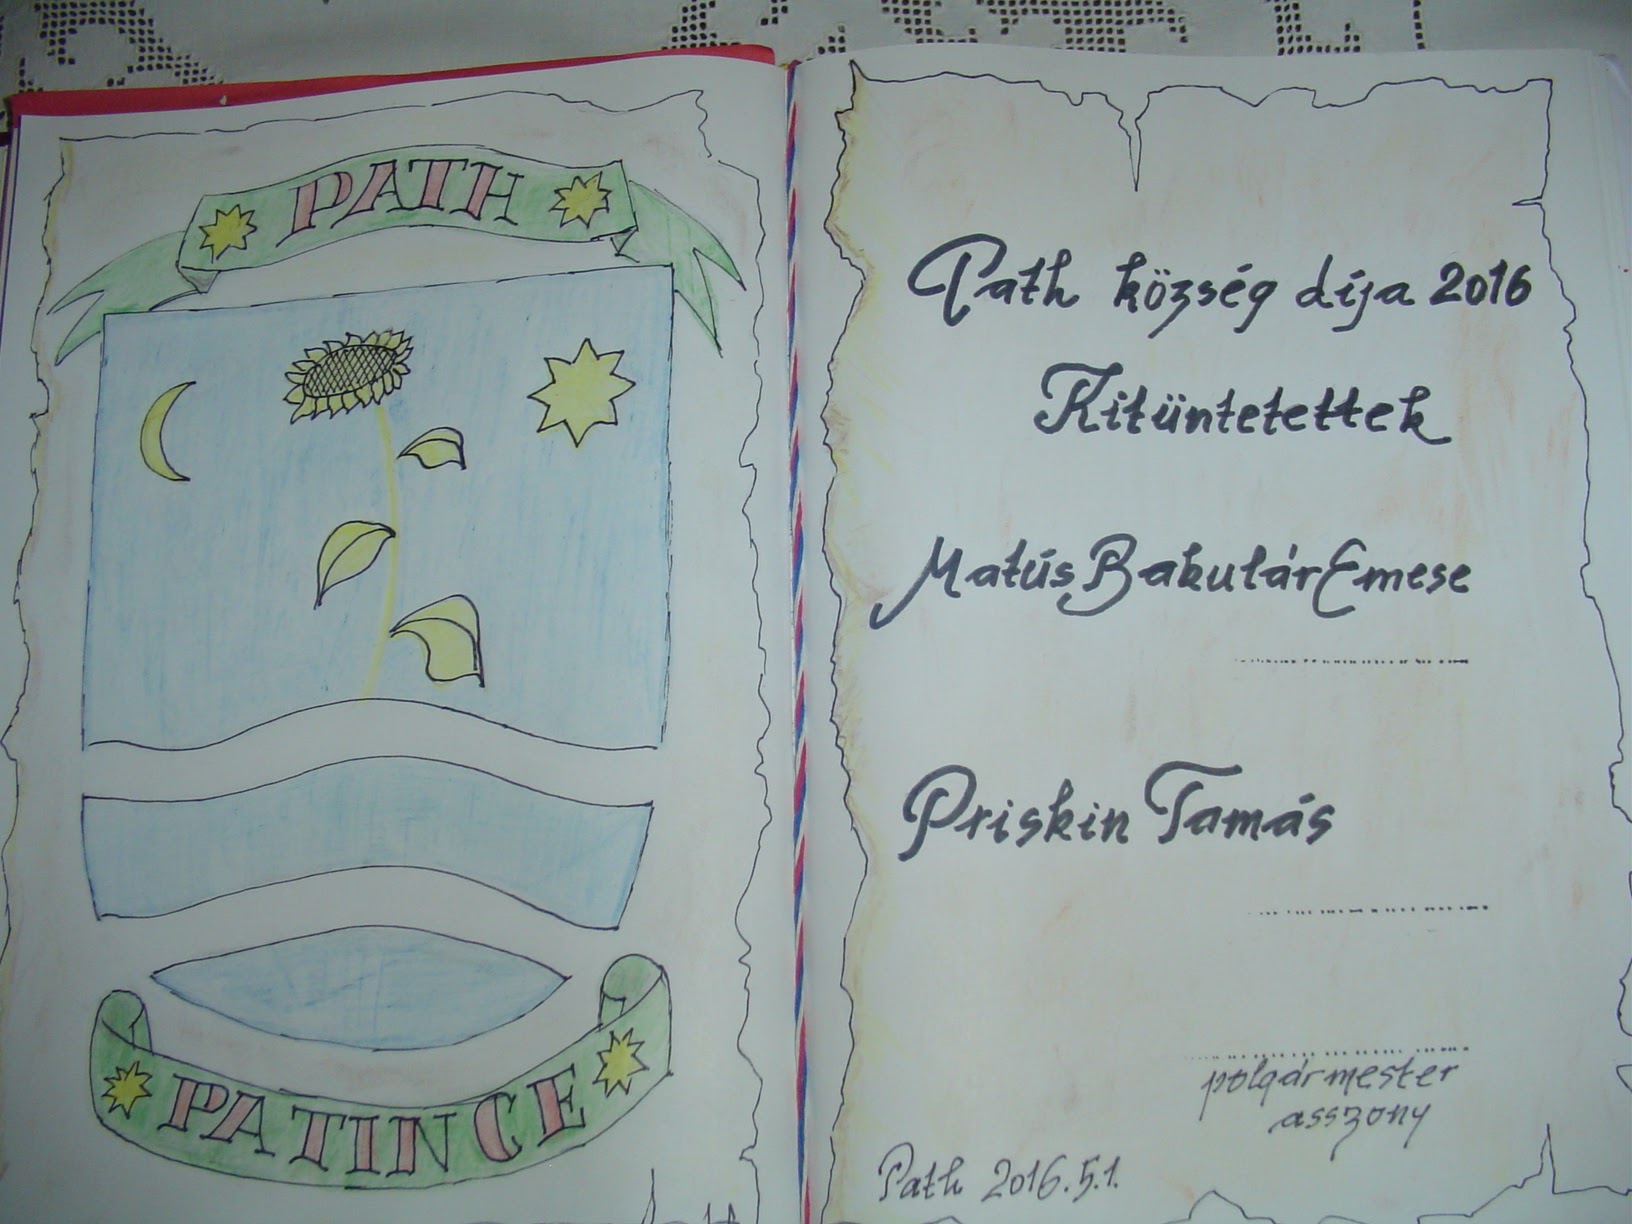 PATH
PATINCE
Path község díja 2016
Kitüntetettek
Matús Bakulár Emese
Priskin Tamás
polgármester
asszony
Path 2016.5.1.